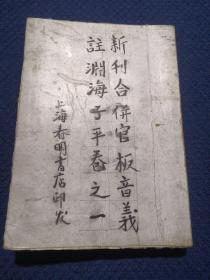 新刊合併官板音義
註淵海子平卷之一
上海春明書店印发